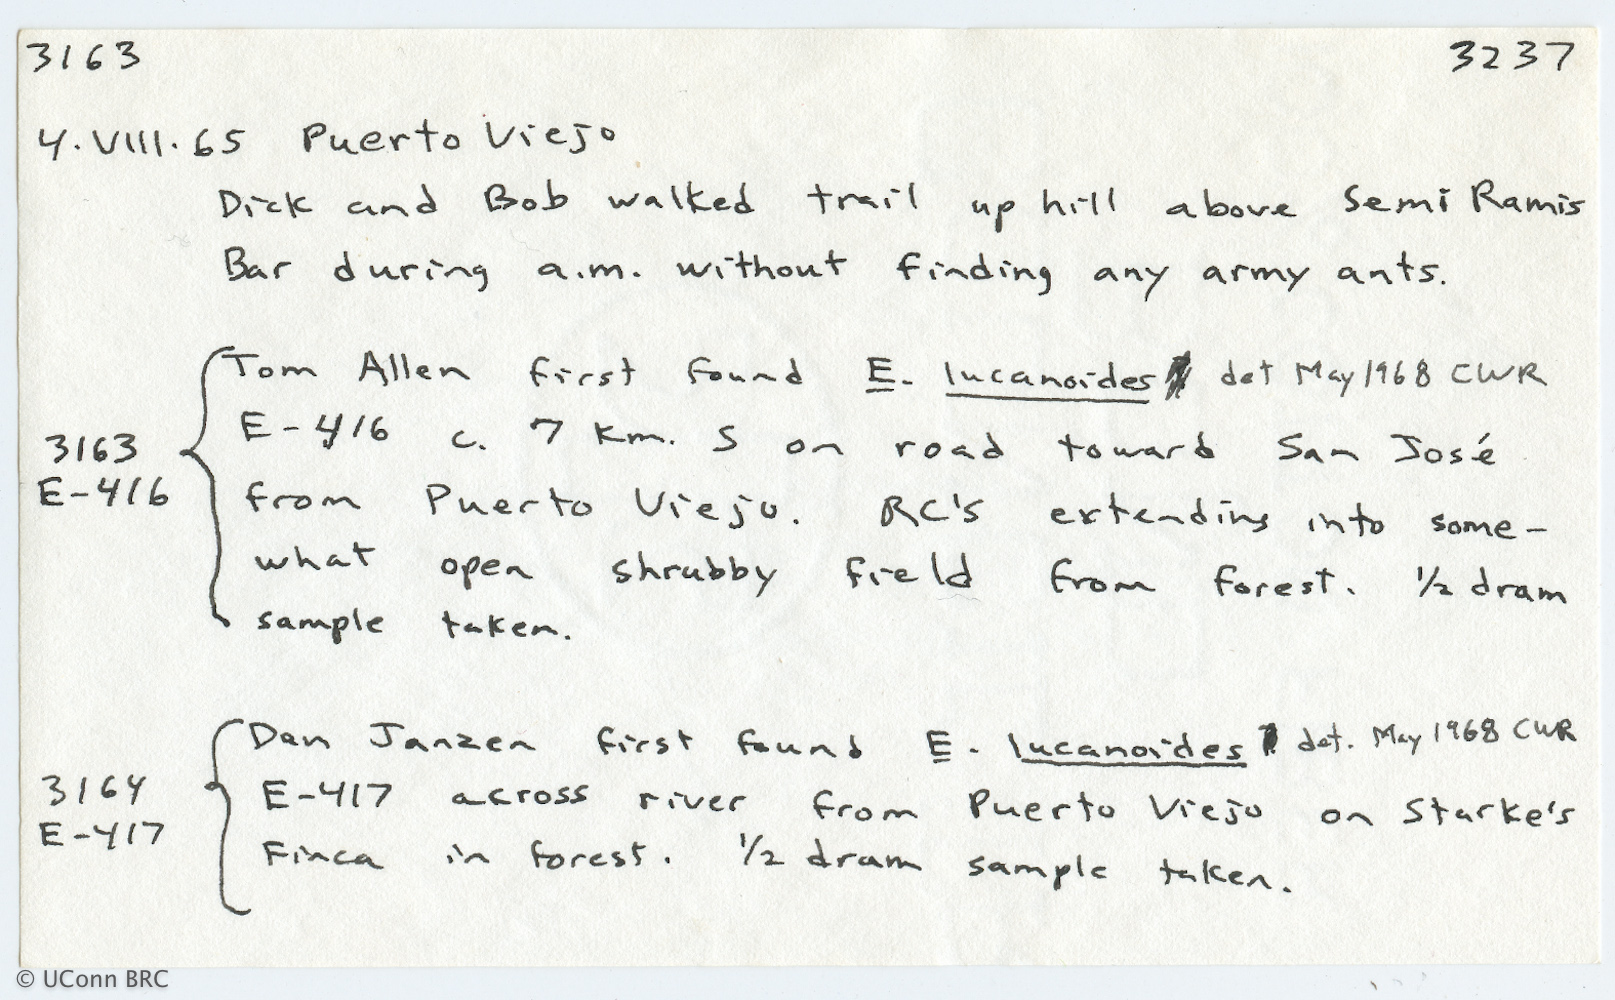 3163 3237
4.VIII.65 Puerto Viejo
Dick and Bob walked trail up hill above Semi Ramis
Bar during a.m. without finding any army ants.
Tom Allen first found E. lucanoides det May 1968 CWR
3163 E-416 c. 7 km. S on road toward San José
E-416 from Puerto Viejo. RC's extending into some-
what open shrubby field from forest. 1/2 dram
sample taken.
Dan Janzen first found E. lucanoides det. May 1968 CWR
3164 E-417 across river from Puerto Viejo on Starke's
E-417 Finca in forest. 1/2 dram sample taken.
© UConn BRC